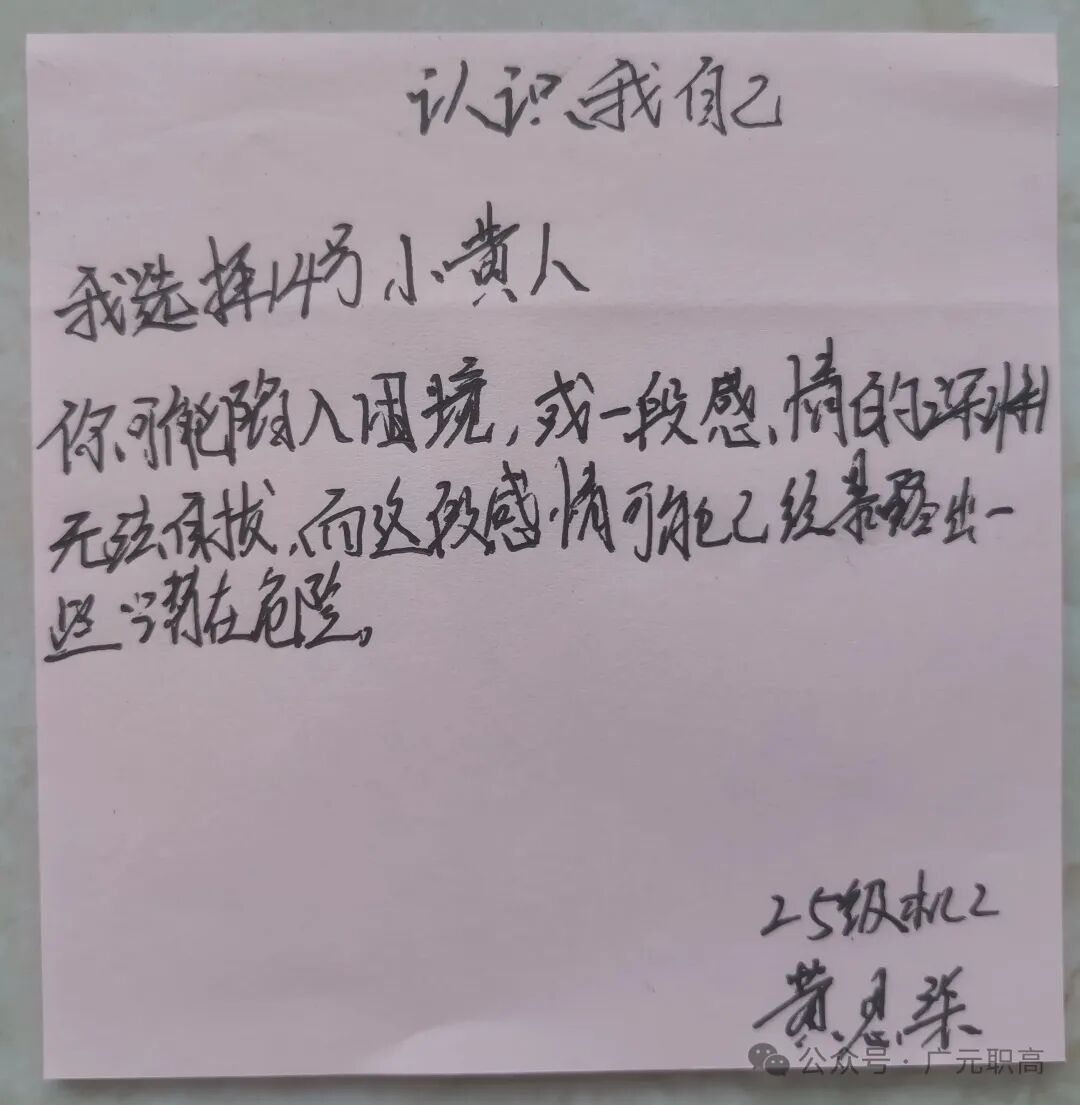 认识我自己
我选择14号小黄人
你可能陷入困境,或一段感情的深渊
无法自拔,而这段感情可能已经暴露出一
些潜在危险。
25级机2
黄思
公众号·广元职高